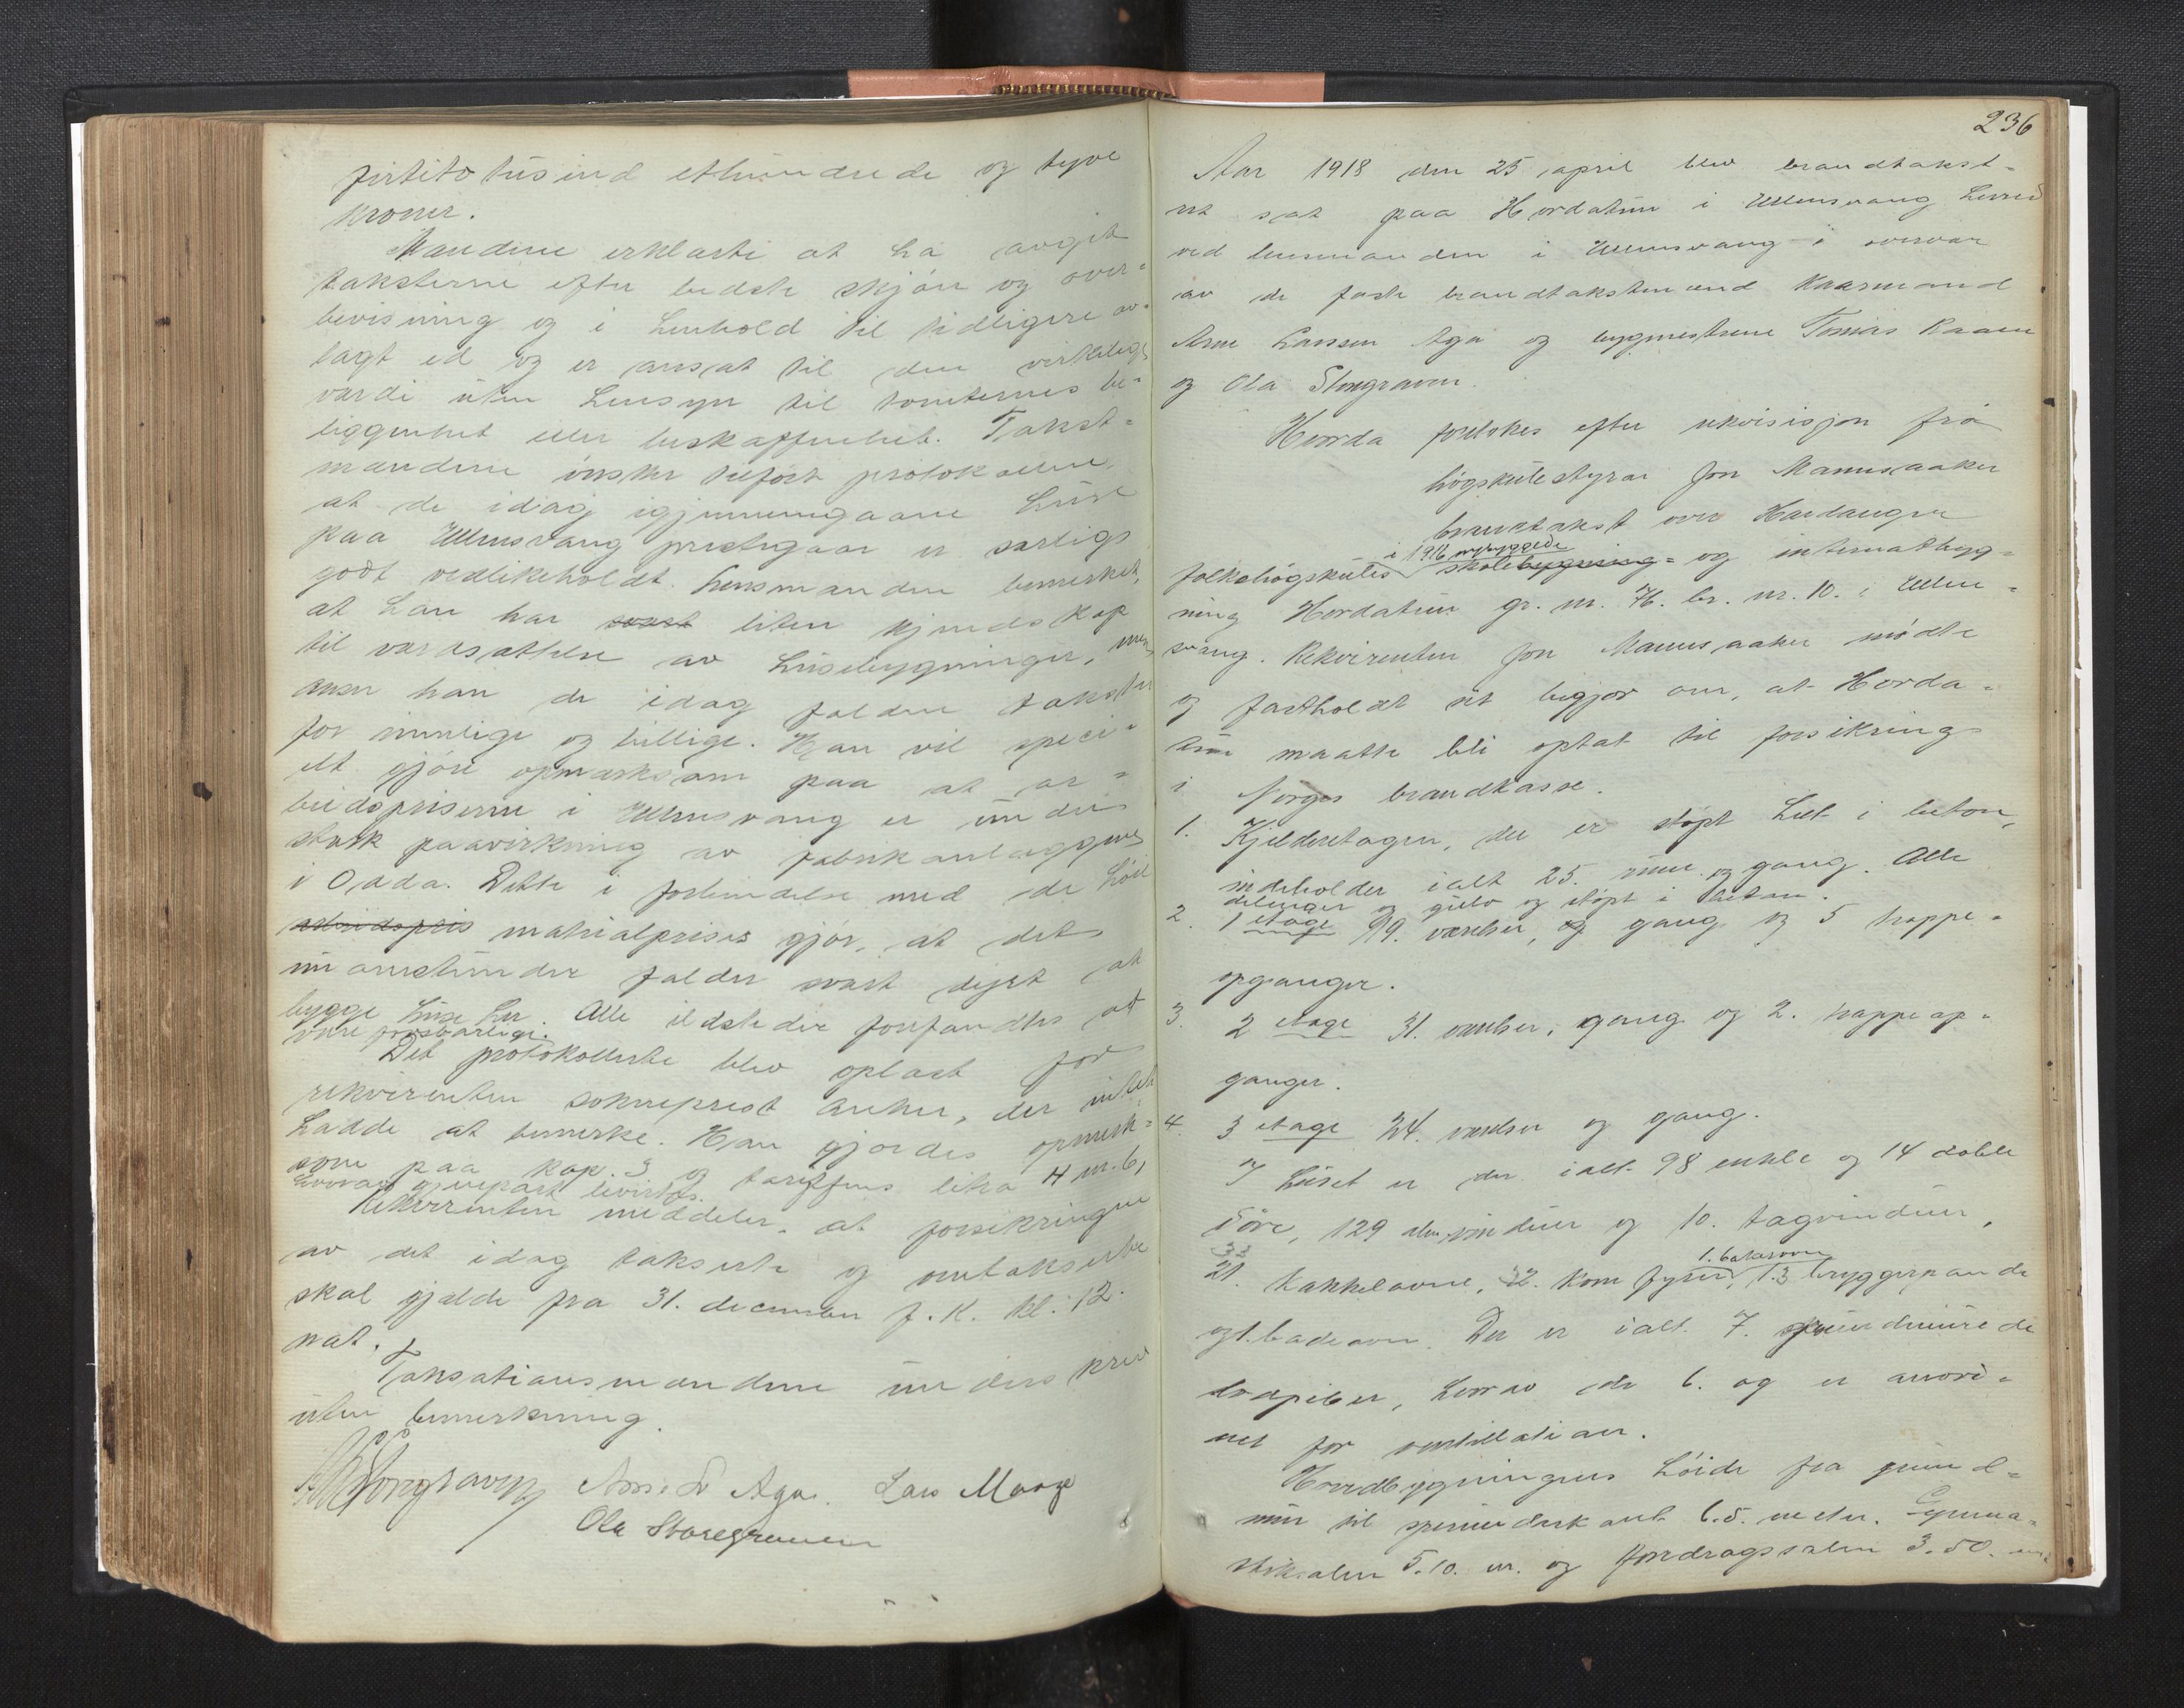 firtito tusind ethundrede og tyve
kroner.
Mændene erklærte at ha avgit
taksterne efter bedste skjøn og over-
bevisning og i henhold til tidligere av-
lagt ed og er ansat til den virkelige
værdi uten hensyn til tomternes be-
liggenhet eller beskaffenhet. Takst-
mændene ønsker tilført protokollen,
at de idag igjennemgaane huse
paa Ullensvang prestegaar er særlig
godt vedlikeholdt. Lensmanden bemerket,
at han har svært liten kjendskap
til værdsættelse av husebygninger, men
anser han de idag faldne takster
for rimelige og billige. Han vil speci-
elt gjøre opmerksom paa at ar-
beidspriserne i Ullensvang er under
sterk paavirkning av fabrikanlæggene
i Odda. Dette i forbindelse med de høie
arbeidspris materialpriser gjør, at det
nu omstunder falder svært dyrt at
bygge huse her. Alle ildsteder forefandtes at
være forsvarlige.
Det protokollerte blev oplæst for
rekvirenten sokneprest Anker, der intet
hadde at bemerke. Han gjordes opmerk-
som paa kap. 3 og tariffens litra H nr. 6,
hvorav gjenpart leveres.
Rekvirenten meddeler, at forsikringen
av det idag takserte og omtakserte
skal gjælde fra 31. december f. k. kl. 12.
nat.
Taksationsmændene underskrev
uten bemerkning.
Storegraven Arne L Aga. Lars Maage
Ola Storegraven
236
Aar 1918 den 25 april blev brandtakst-
ret sat paa Hordatun i Ullensvang herred
ved lensmanden i Ullensvang i overvær
av de faste brandtakstmænd kaarmand
Arne Larsen Aga og bygmestrene Tomas Raaen
og Ola Storegraven.
Hvorda foretokes efter rekvisisjon fra
høgskulestyrar Jon Mannsaaker
brandtakst over Hardanger
i 1916 nybyggede
folkehøgskules skolebygning- og internatbyg-
ning Hordatun gr. nr. 76. br. nr. 10. i Ullens-
vang. Rekvirenten Jon Mannsaaker mødte
og fastholdt sit begjær om, at Horda-
tun maatte bli optat til forsikring
i Norges brandkasse.
1. Kjelderetagen, der er støpt helt i beton,
indeholder ialt 25. rum og gang. Alle
delinger og gulv og støpt i beton.
2. 1 etage 19. værelser, og gang og 5 trappe-
opganger.
3. 2 etage 31. værelser, gang og 2. trappeop-
ganger.
4. 3 etage 24. værelser og gang.
I huset er der ialt 98 enkle og 14 doble
døre, 129 alm. vinduer og 10. tagvinduer,
33
21. kakkelovne, 2. komfyrer, 1. bakerovn 1.3 bryggepande
og 1. badeovn. Der er ialt 7. grundmurede
brapiber, hvorav de 6. og er anord-
net for ventillation.
Hovedbygningens høide fra grund-
mur til sperredækkant 6.5. meter. Gymna-
stiksalen 5.10. m. og foredragssalen 3.50. m.